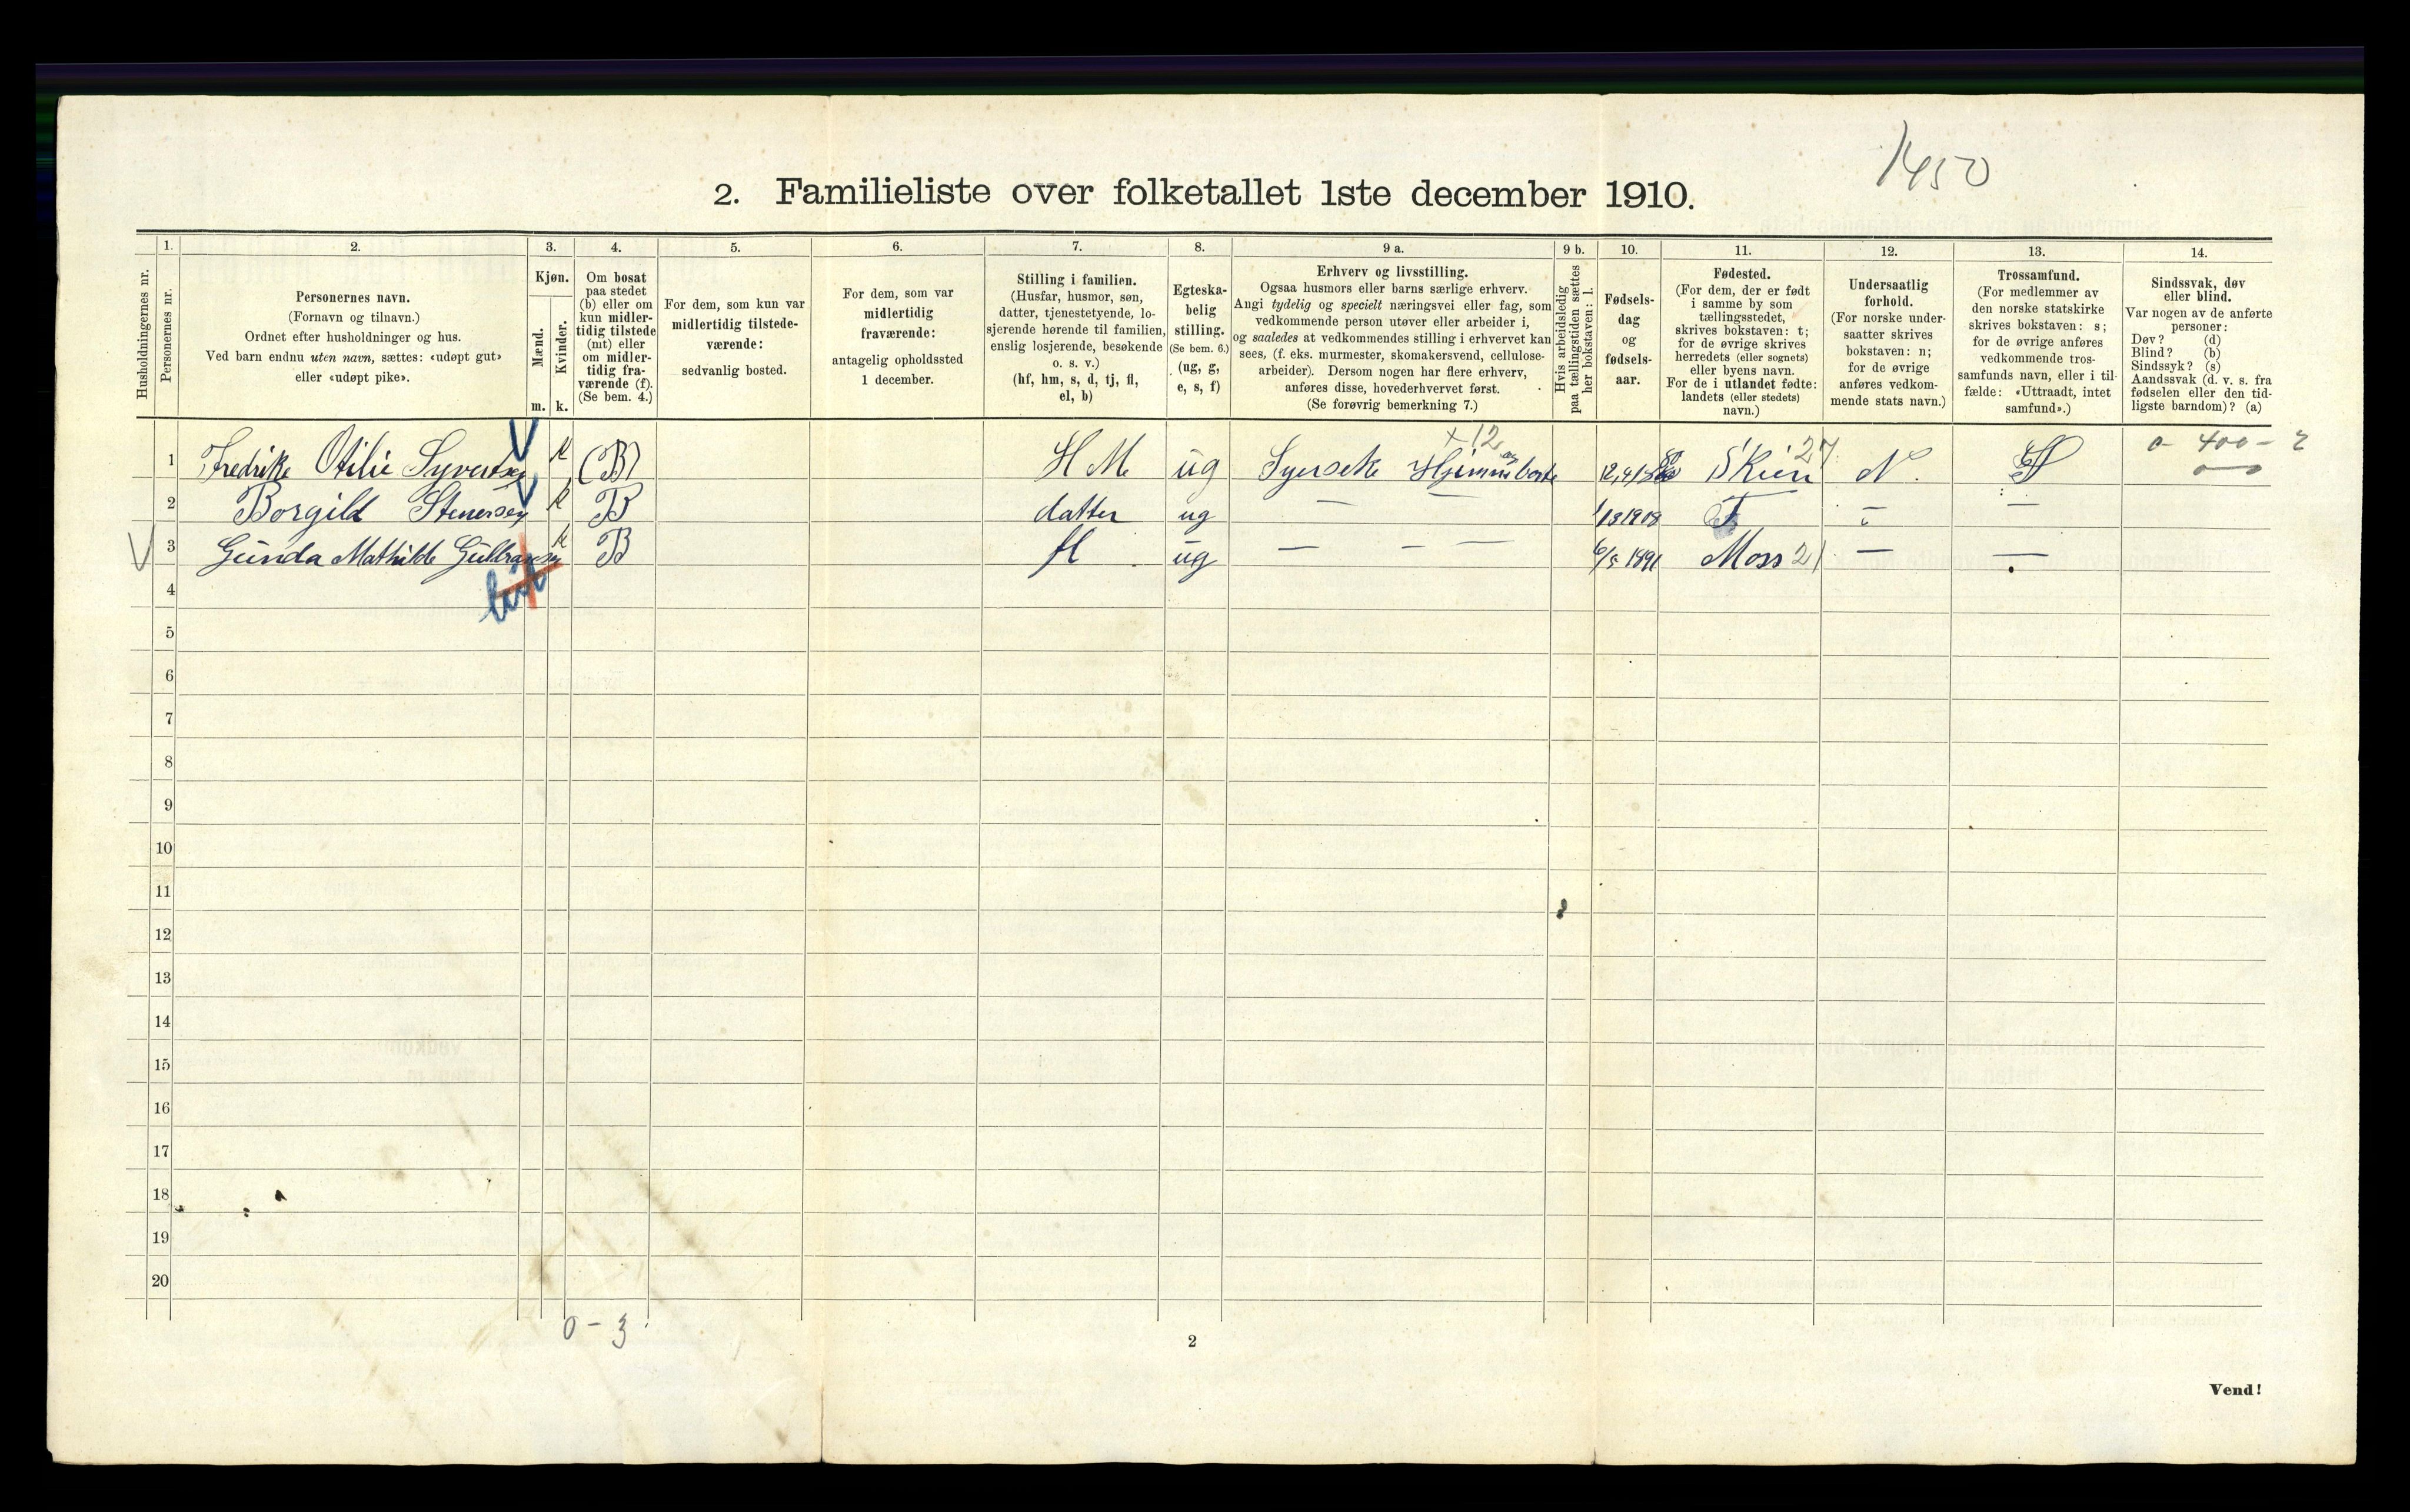 1450
2. Familieliste over folketallet 1ste december 1910.
1. 2. 3. 4. 5. 6. 7. 8. 9 a. 9 b. 10. 11. 12. 13. 14.
Husholdningernes nr.
Personernes nr.
Personernes navn.
(Fornavn og tilnavn.)
Ordnet efter husholdninger og hus.
Ved barn endnu uten navn, sættes: «udøpt gut»
eller «udøpt pike».
Kjøn.
Mænd.
Kvinder.
m. k.
Om bosat
paa stedet
(b) eller om
kun midler-
tidig tilstede
(mt) eller
om midler-
tidig fra-
værende (f).
(Se bem. 4.)
For dem, som kun var
midlertidig tilstede-
værende:
sedvanlig bosted.
For dem, som var
midlertidig
fraværende:
antagelig opholdssted
1 december.
Stilling i familien.
(Husfar, husmor, søn,
datter, tjenestetyende, lo-
sjerende hørende til familien,
enslig losjerende, besøkende
o. s. v.)
(hf, hm, s, d, tj, fl,
el, b)
Egteska-
belig
stilling.
(Se bem. 6.)
(ug, g,
e, s, f)
Erhverv og livsstilling.
Ogsaa husmors eller barns særlige erhverv.
Angi tydelig og specielt næringsvei eller fag, som
vedkommende person utøver eller arbeider i,
og saaledes at vedkommendes stilling i erhvervet kan
sees, (f. eks. murmester, skomakersvend, cellulose-
arbeider). Dersom nogen har flere erhverv,
anføres disse, hovederhvervet først.
(Se forøvrig bemerkning 7.)
Hvis arbeidsledig
paa tællingstiden sættes
her bokstaven: l.
Fødsels-
dag
og
fødsels-
aar.
Fødested.
(For dem, der er født
i samme by som
tællingsstedet,
skrives bokstaven: t;
for de øvrige skrives
herredets (eller sognets)
eller byens navn.
For de i utlandet fødte:
landets (eller stedets)
navn.)
Undersaatlig
forhold.
(For norske under-
saatter skrives
bokstaven: n;
for de øvrige
anføres vedkom-
mende stats navn.)
Trossamfund.
(For medlemmer av
den norske statskirke
skrives bokstaven: s;
for de øvrige anføres
vedkommende tros-
samfunds navn, eller i til-
fælde: «Uttraadt, intet
samfund».)
Sindssvak, døv
eller blind.
Var nogen av de anførte
personer:
Døv? (d)
Blind? (b)
Sindssyk? (s)
Aandssvak (d. v. s. fra
fødselen eller den tid-
ligste barndom)? (a)
1 Fredrike Otilie Syvertsen k (B) H M ug Syerske Skien 27 N. S 0 - 400 - 2
2 Borgild Stenersen k B datter ug — — 1908 T — —
3 Gunda Mathilde Gulbransen k B fl ug — — — 6/5 1891 Moss 21 — —
4
5
6
7
8
9
10
11
12
13
14
15
16
17
18
19
20
0 - 3
2
Vend!